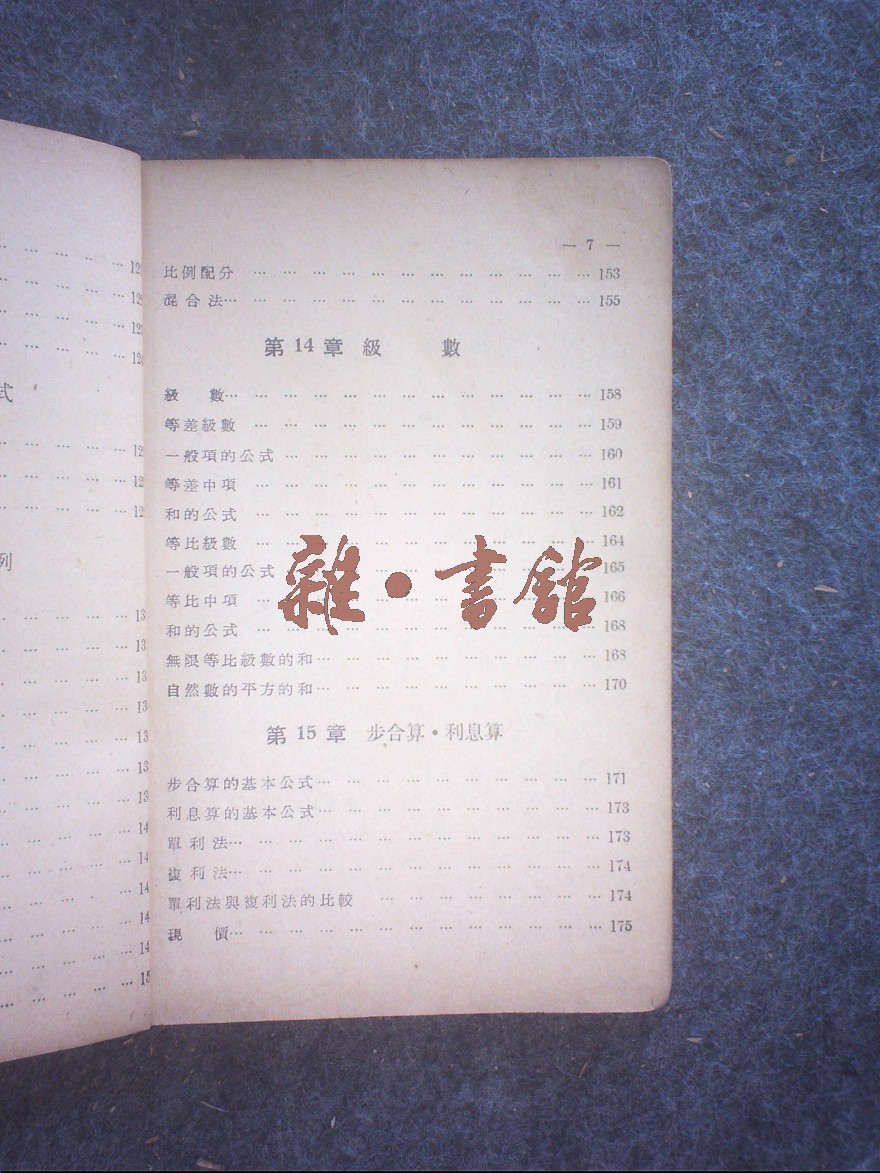 — 7 —
比例配分 … … … … … … … … … … … … 153
混合法… … … … … … … … … … … … … 155
第 14 章 級 數
級 數… … … … … … … … … … … … … 158
等差級數 … … … … … … … … … … … … 159
一般項的公式 … … … … … … … … … … … 160
等差中項 … … … … … … … … … … … … 161
和的公式 … … … … … … … … … … … … 162
等比級數 … … … … … … … … … … … … 164
一般項的公式 … … … … … … … … … … … 165
等比中項 … … … … … … … … … … … … 166
和的公式 … … … … … … … … … … … … 168
無限等比級數的和… … … … … … … … … … 168
自然數的平方的和… … … … … … … … … … 170
雜·書館
第 15 章 步合算·利息算
步合算的基本公式… … … … … … … … … … 171
利息算的基本公式… … … … … … … … … … 173
單利法… … … … … … … … … … … … … 173
複利法… … … … … … … … … … … … … 174
單利法與複利法的比較 … … … … … … … … 174
現 價… … … … … … … … … … … … … 175
式
列